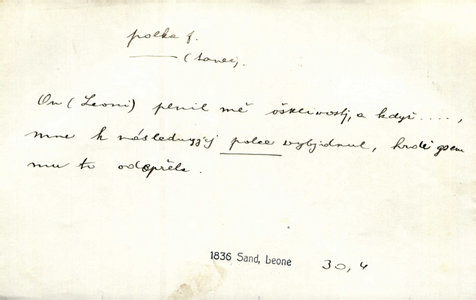 polka f.
(tanec).
On (Leoni) plnil mě ošklivostj, a když ....,
mne k následugjcj polce vybjdnul, hrdě gsem
mu to odepřela.
1836 Sand, Leone 30,4